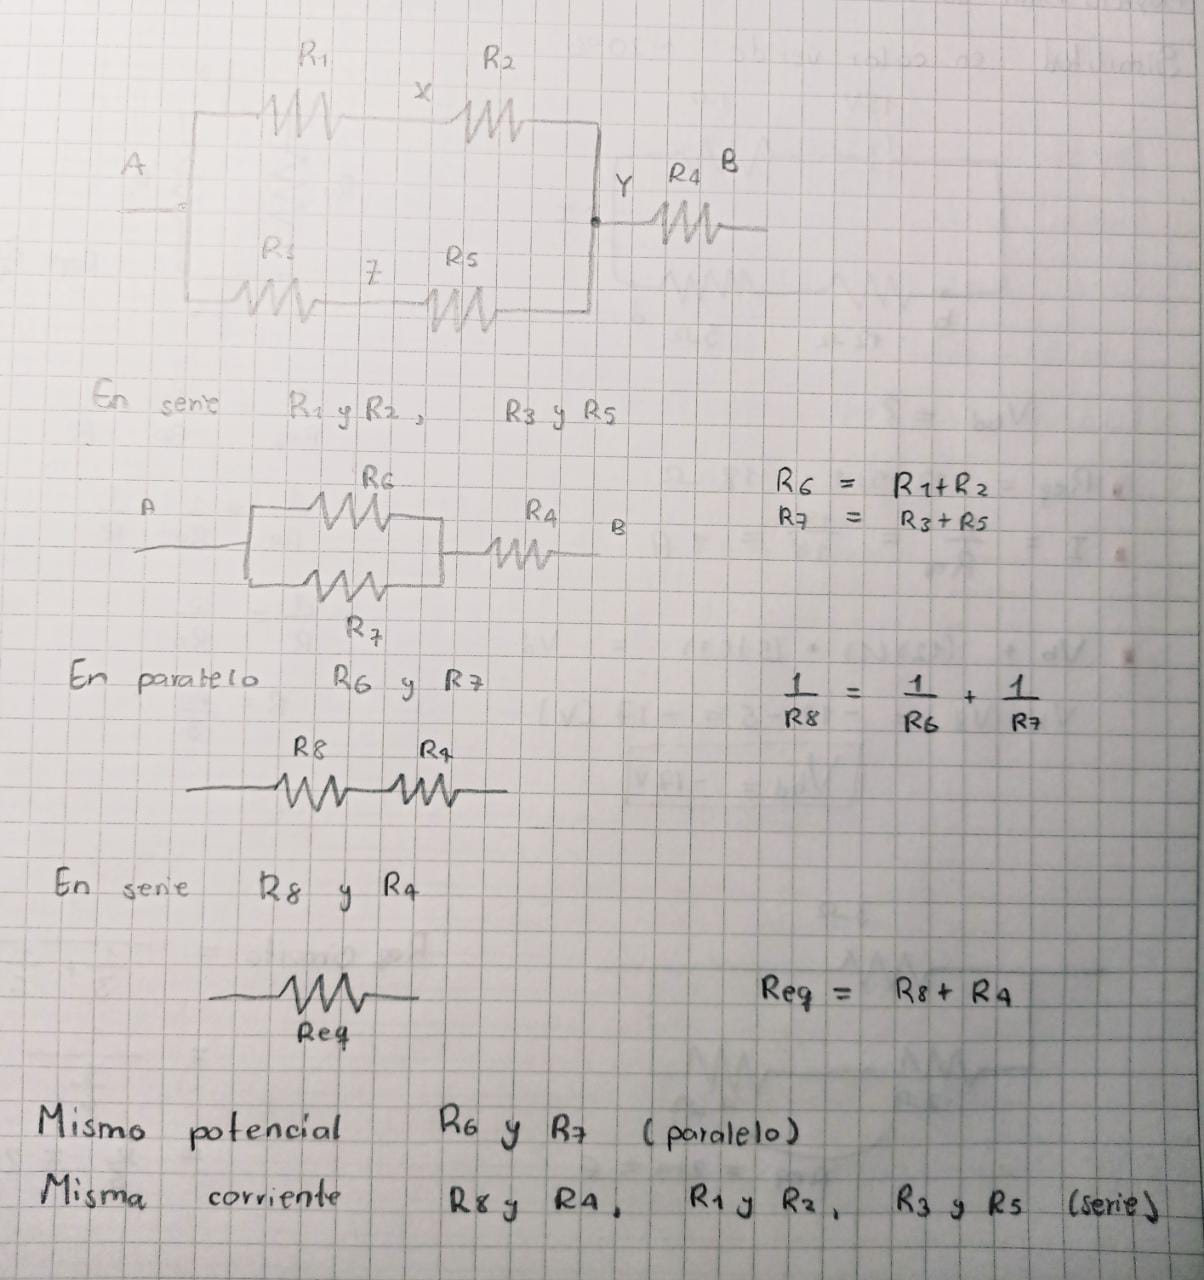 R1 R2
X
A
Y R4 B
R3 Z R5
En serie R1 y R2, R3 y R5
R6
R6 = R1+R2
A R4 B
R7 = R3+R5
R7
En paralelo R6 y R7
1/R8 = 1/R6 + 1/R7
R8 R4
En serie R8 y R4
Req
Req = R8 + R4
Mismo potencial R6 y R7 (paralelo)
Misma corriente R8 y R4, R1 y R2, R3 y R5 (serie)